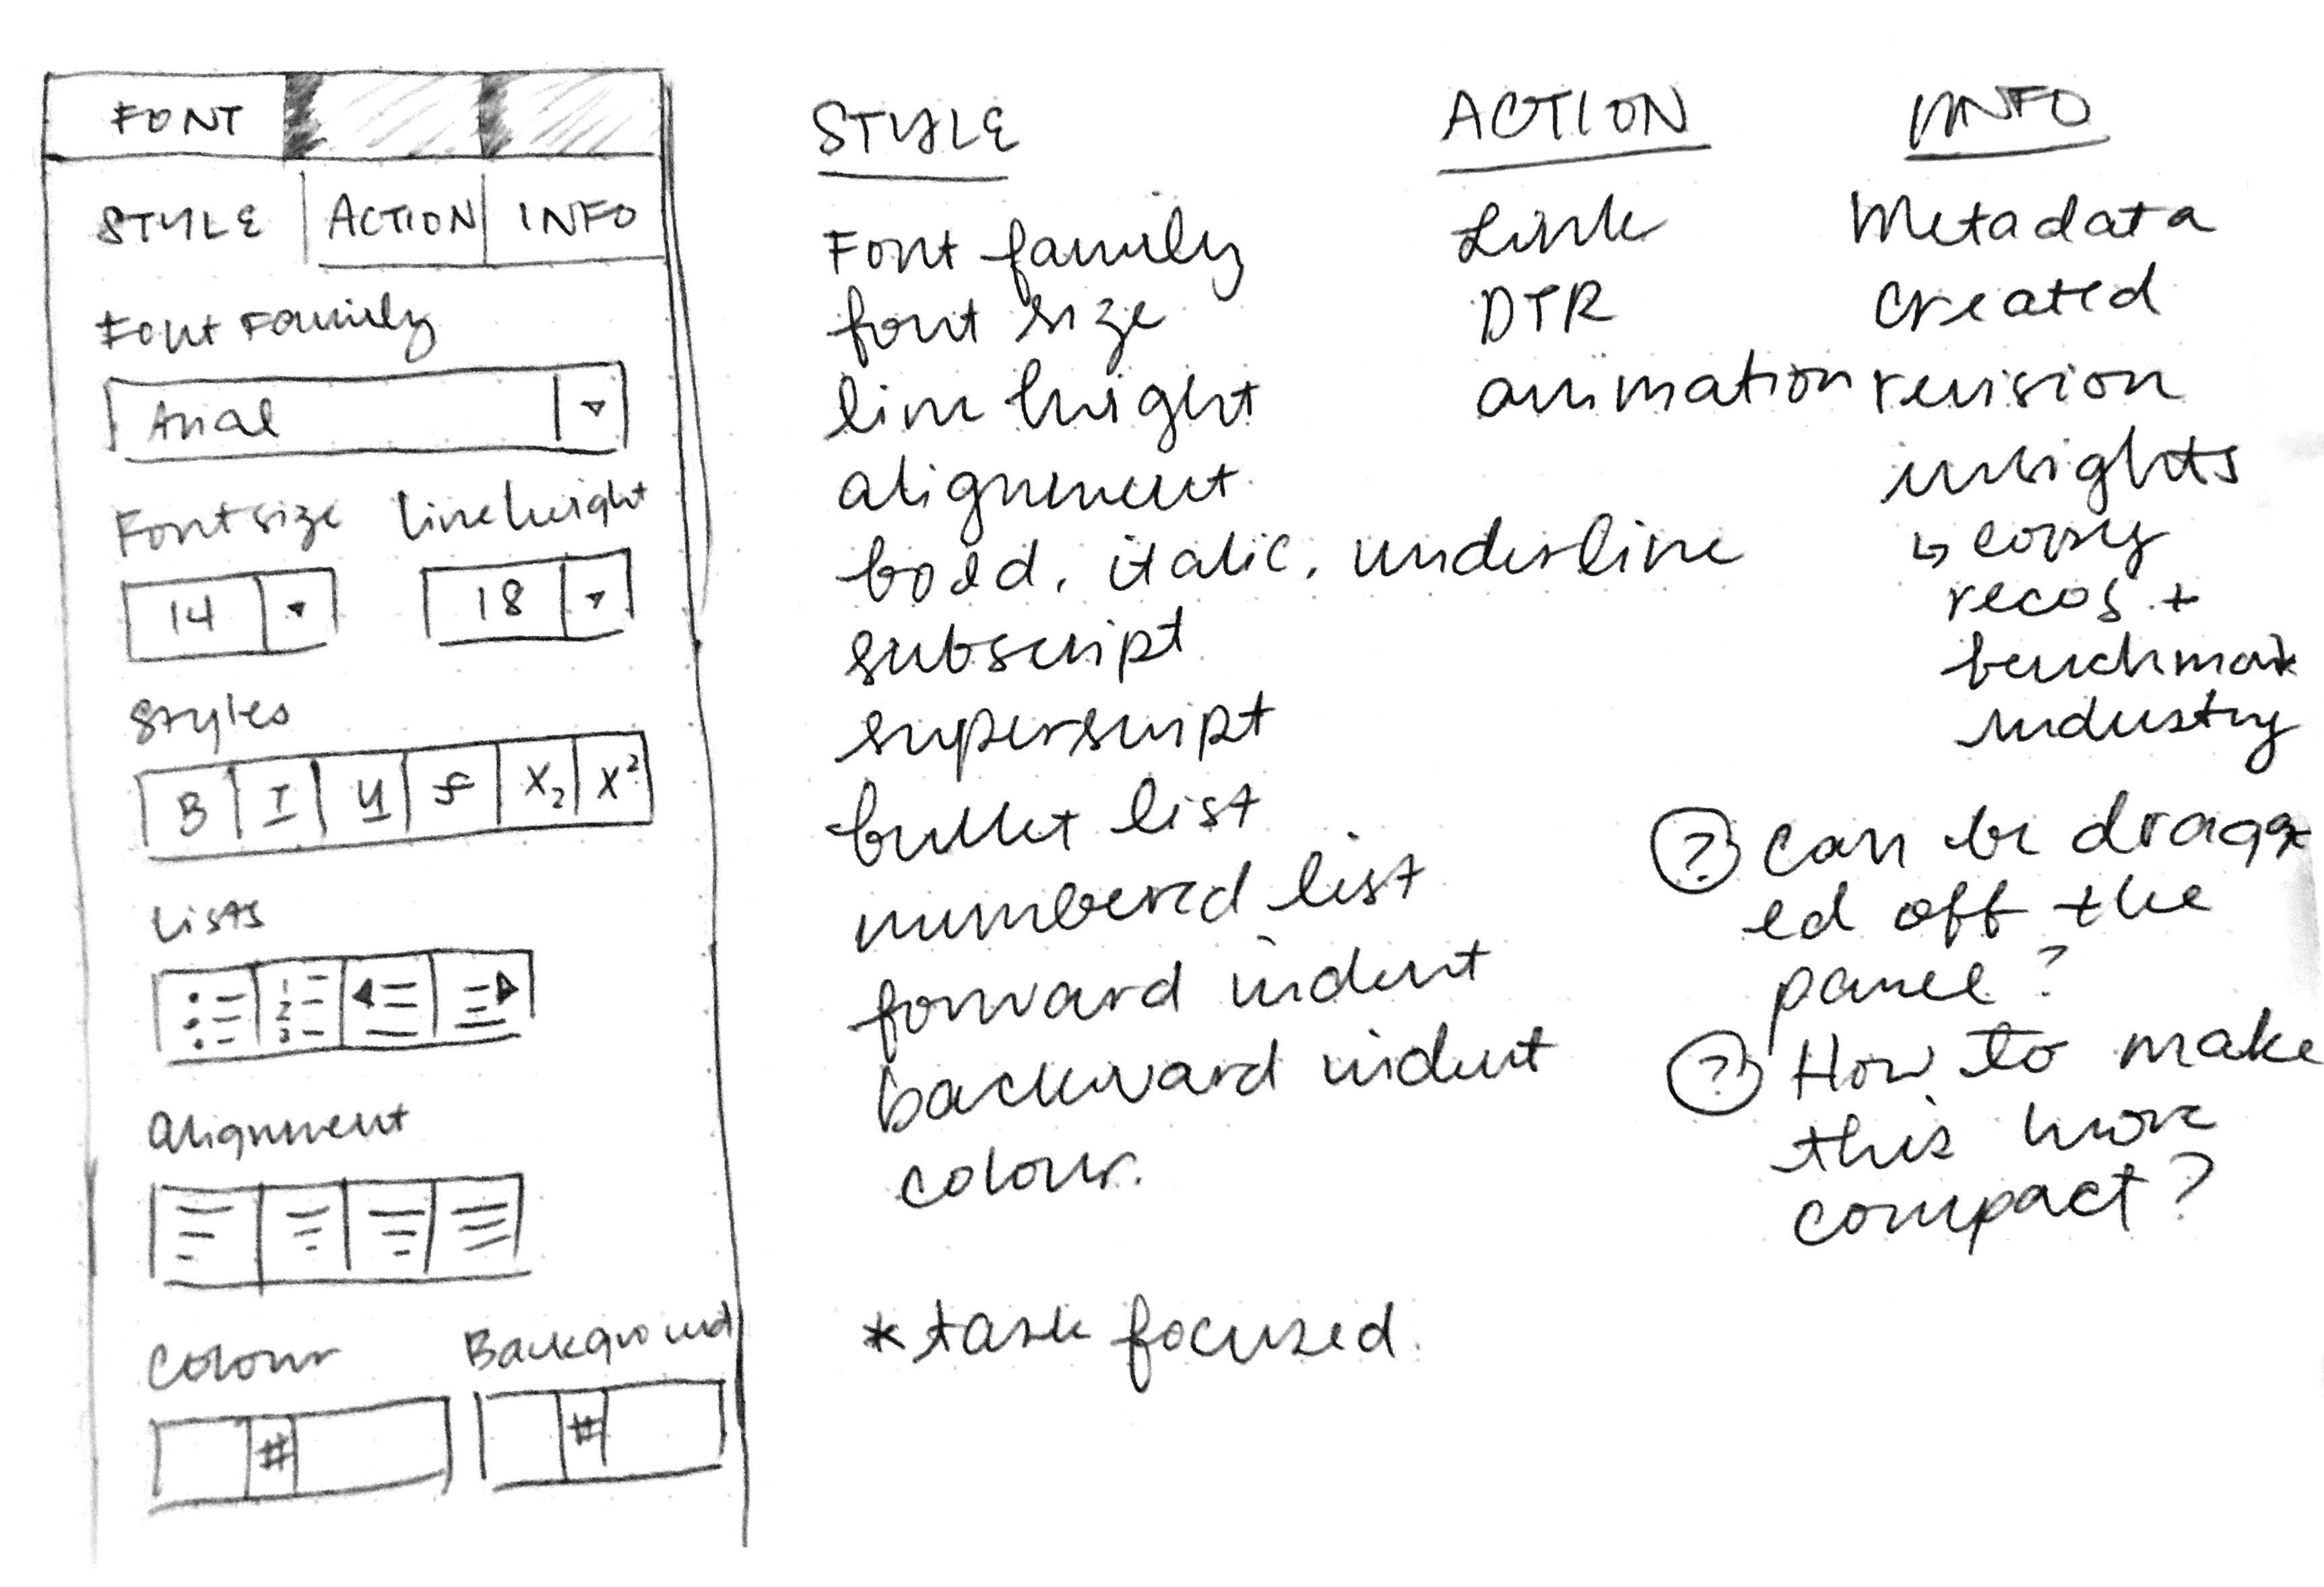 FONT
STYLE ACTION INFO
Font Family
Arial
Font size line height
14 18
Styles
B I U f X₂ X²
Lists
1
2
3
Alignment
Colour Background
# #
STYLE
Font family
font size
line height
alignment
bold, italic, underline
subscript
superscript
bullet list
numbered list
forward indent
backward indent
colour.
* task focused.
ACTION
Link
DTR
animation
INFO
Metadata
created
revision
insights
↳
recos +
benchmark
industry
? Can be dragg
ed off the
panel?
? How to make
this more
compact?